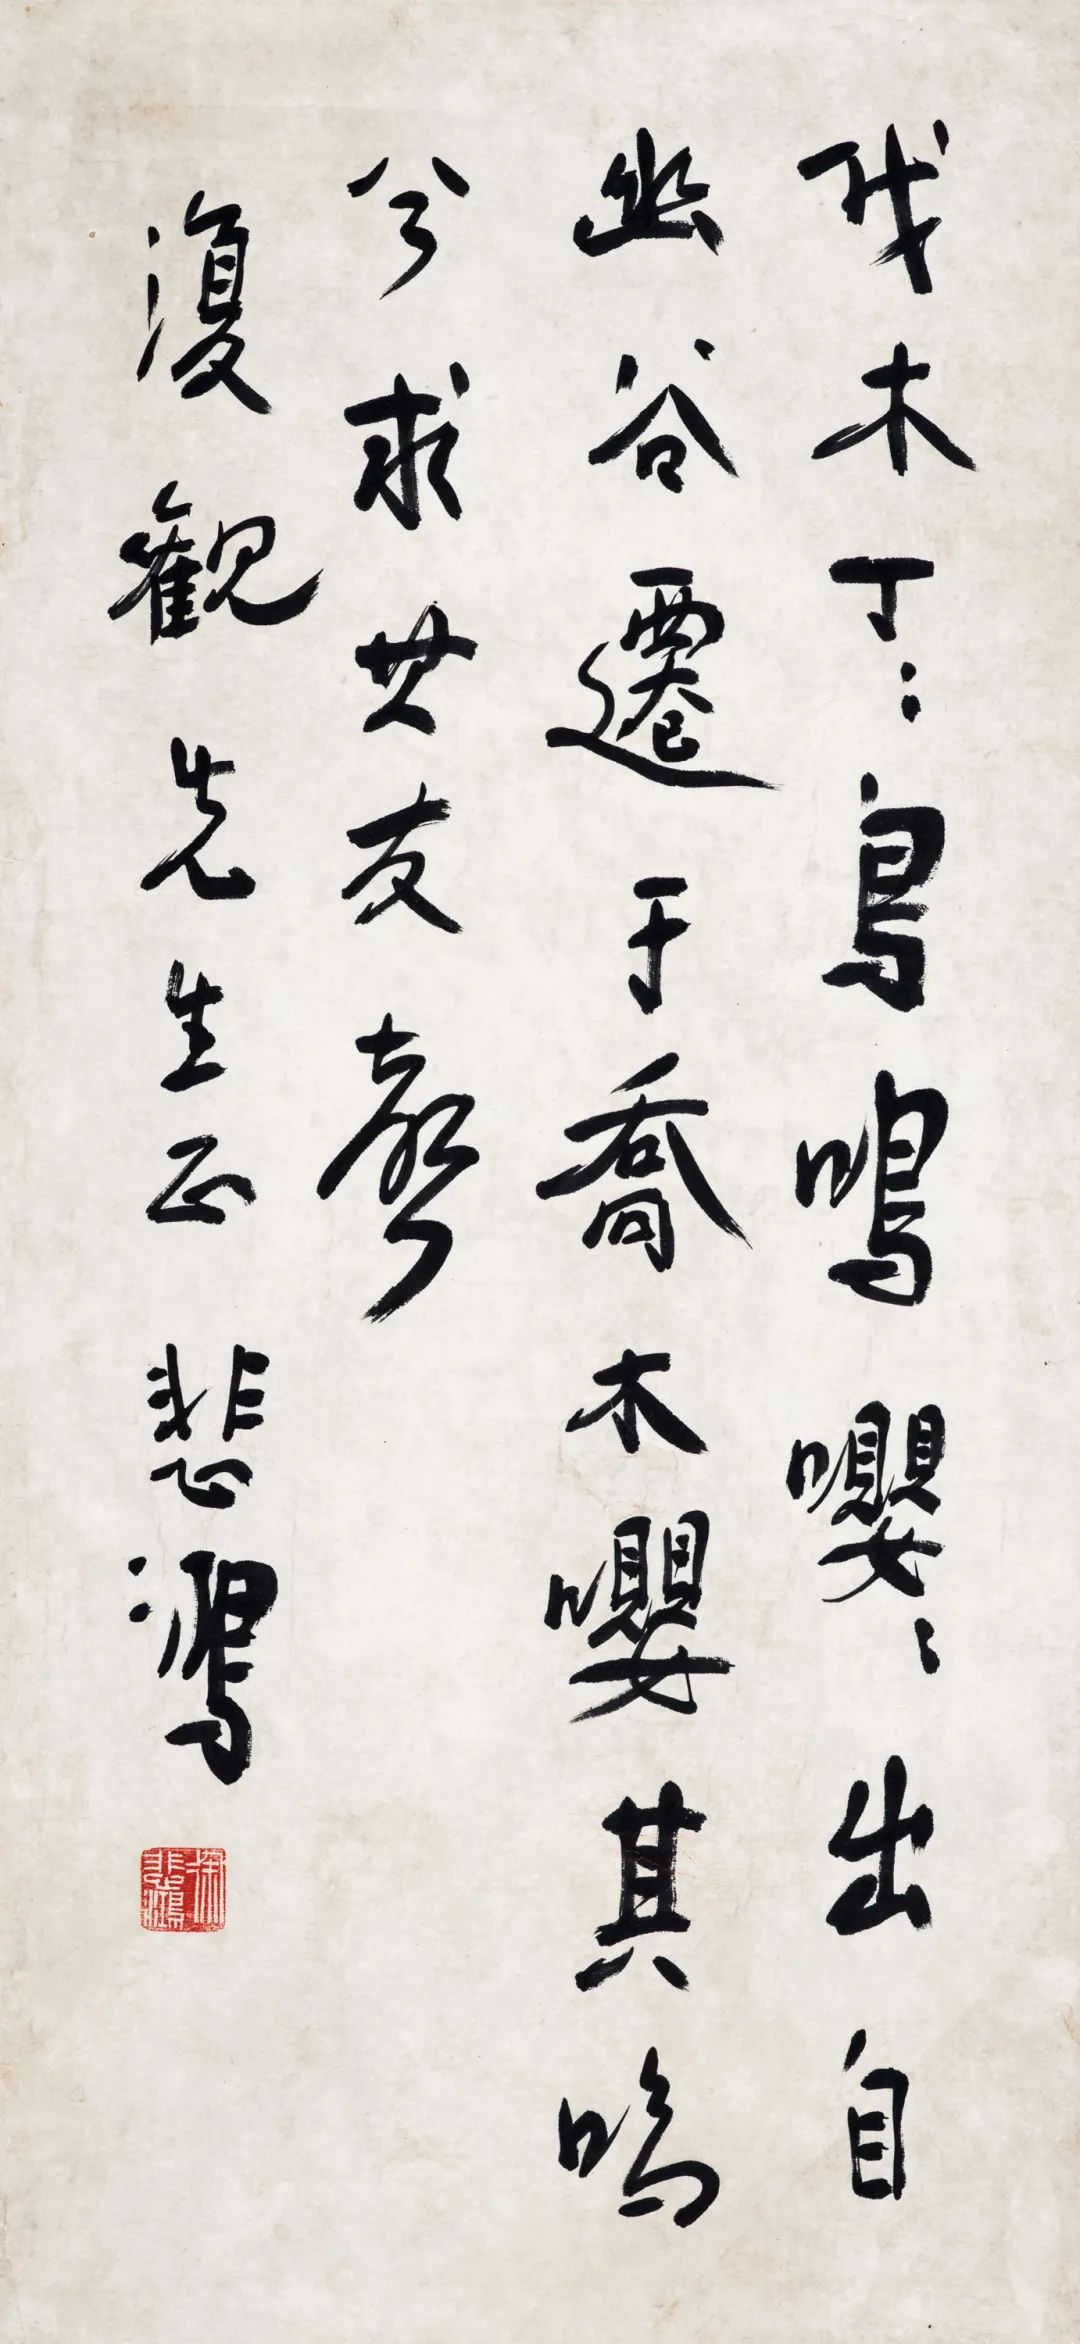 伐木丁〻鳥鳴嚶〻出自
幽谷遷于喬木嚶其鳴
兮求其友聲
復觀先生正 悲鴻
徐悲鴻